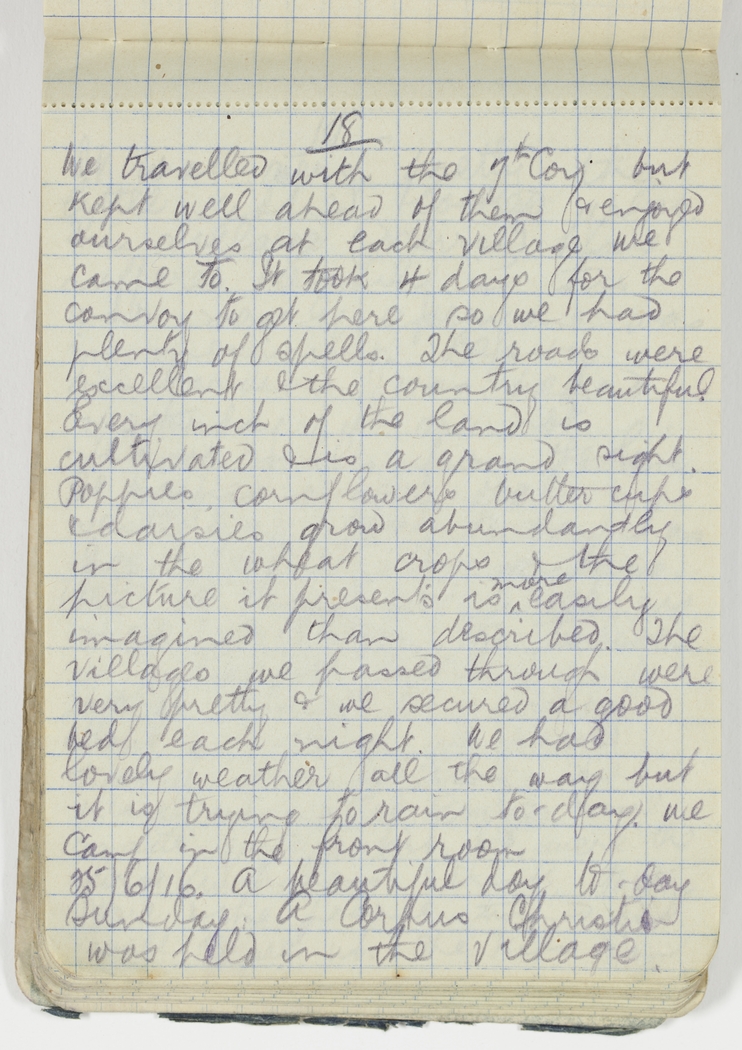 18
We travelled with the 7th Coy but
kept well ahead of them & enjoyed
ourselves at each village we
came to. It took 4 days for the
convoy to get here so we had
plenty of spells. The roads were
excellent & the country beautiful.
Every inch of the land is
cultivated & is a grand sight.
Poppies, cornflowers buttercups
& daisies grow abundantly
in the wheat crops & the
picture it presents is more easily
imagined than described. The
villages we passed through were
very pretty & we secured a good
bed each night. We had
lovely weather all the way but
it is trying to rain to-day. We
camp in the front room
25/6/16. A beautiful day to-day
Sunday. A Corpus Christi
was held in the village.